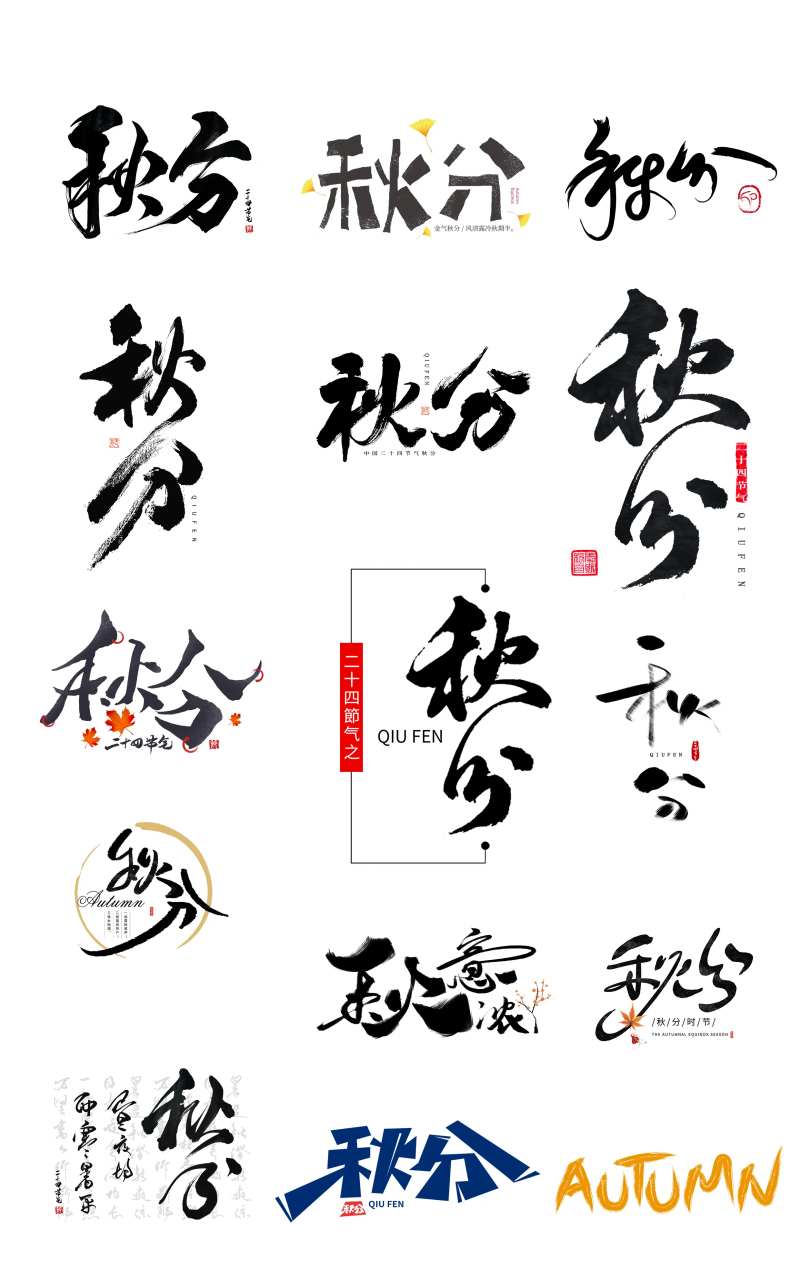 秋分
二十四节气
秋分
金气秋分/风清露冷秋期半。
秋分
秋分
QIUFEN
秋分
QIUFEN
中国二十四节气秋分
秋分
二十四节气
QIUFEN
秋分
二十四节气
二十四節气之
QIU FEN
秋分
秋分
QIUFEN
秋分
Autumn
秋意浓
秋分
/秋/分/时/节/
THE AUTUMNAL EQUINOX SEASON
秋分
昼夜均
而寒暑平
二十四节气
秋分
秋分
QIU FEN
AUTUMN